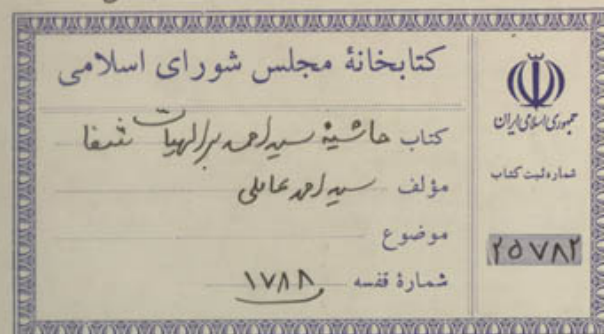 کتابخانهٔ مجلس شورای اسلامی
کتاب حاشیهٔ سید احمد بر الهیات شفا
مؤلف سید احمد عاملی
موضوع
شمارهٔ قفسه ۱۷۸۸
جمهوری اسلامی ایران
شماره ثبت کتاب
۲۵۷۸۲